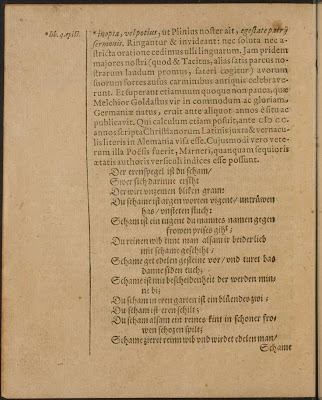 *lib. 4. epist.
*inopia, vel potius, ut Plinius noster ait, egestate patrij
sermonis. Ringantur & invideant: nec soluta nec a-
stricta oratione cedimus ulli linguarum. Jam pridem
majores nostri (quod & Tacitus, alias satis parcus no-
strarum laudum promus, fateri cogitur) avorum
suorum fortes ausus carminibus antiquis celebrave-
runt. Et superant etiamnum quoque non pauca, quæ
Melchior Goldastus vir in commodum ac gloriam,
Germaniæ natus, eruit ante aliquot annos è situ ac
publicavit. Qui calculum etiam posuit, ante
annos scripta Christianorum Latinis juxta & vernacu-
lis literis in Alemania visa esse. Cujusmodi vero vete-
rum illa Poësis fuerit, Marneri, quanquam sequioris
ætatis authoris versiculi indices esse possunt.
Der erenspegel ist du scham/
Swer sich darinne ersiht
Der wirt unzemen bliken gram:
Du schame ist argen worten vigent/ untrüwen
has/ unsteten fluch:
Scham ist ein tugent du mannes namen gegen
frowen prises giht/
Du reinen wib tunt man alsam ir beider lieb
mit schame geschiht/
Schame get edelen gesteine vor/ und turet bas
danne siden tuch;
Schame ist mit bescheidenheit der werden min-
ne bi;
Du scham in eren garten ist ein bluendes zwi;
Du scham ist eren schilt;
Du scham alsam ein reines kint in schoner fro-
wen schozen spilt;
Schame zieret reinu wib und wirdet edelen man/
Schame